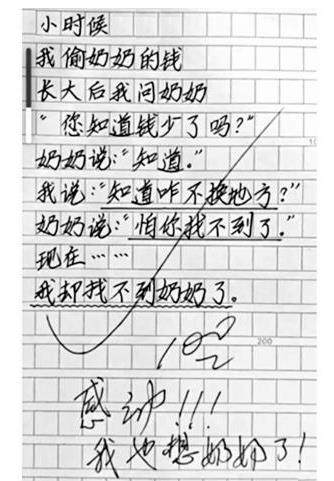 小时候
我偷奶奶的钱
长大后我问奶奶
“您知道钱少了吗？”
奶奶说：“知道。”
我说：“知道咋不换地方？”
奶奶说：“怕你找不到了。”
现在……
我却找不到奶奶了。
100
200
感动!!!
我也想奶奶了!